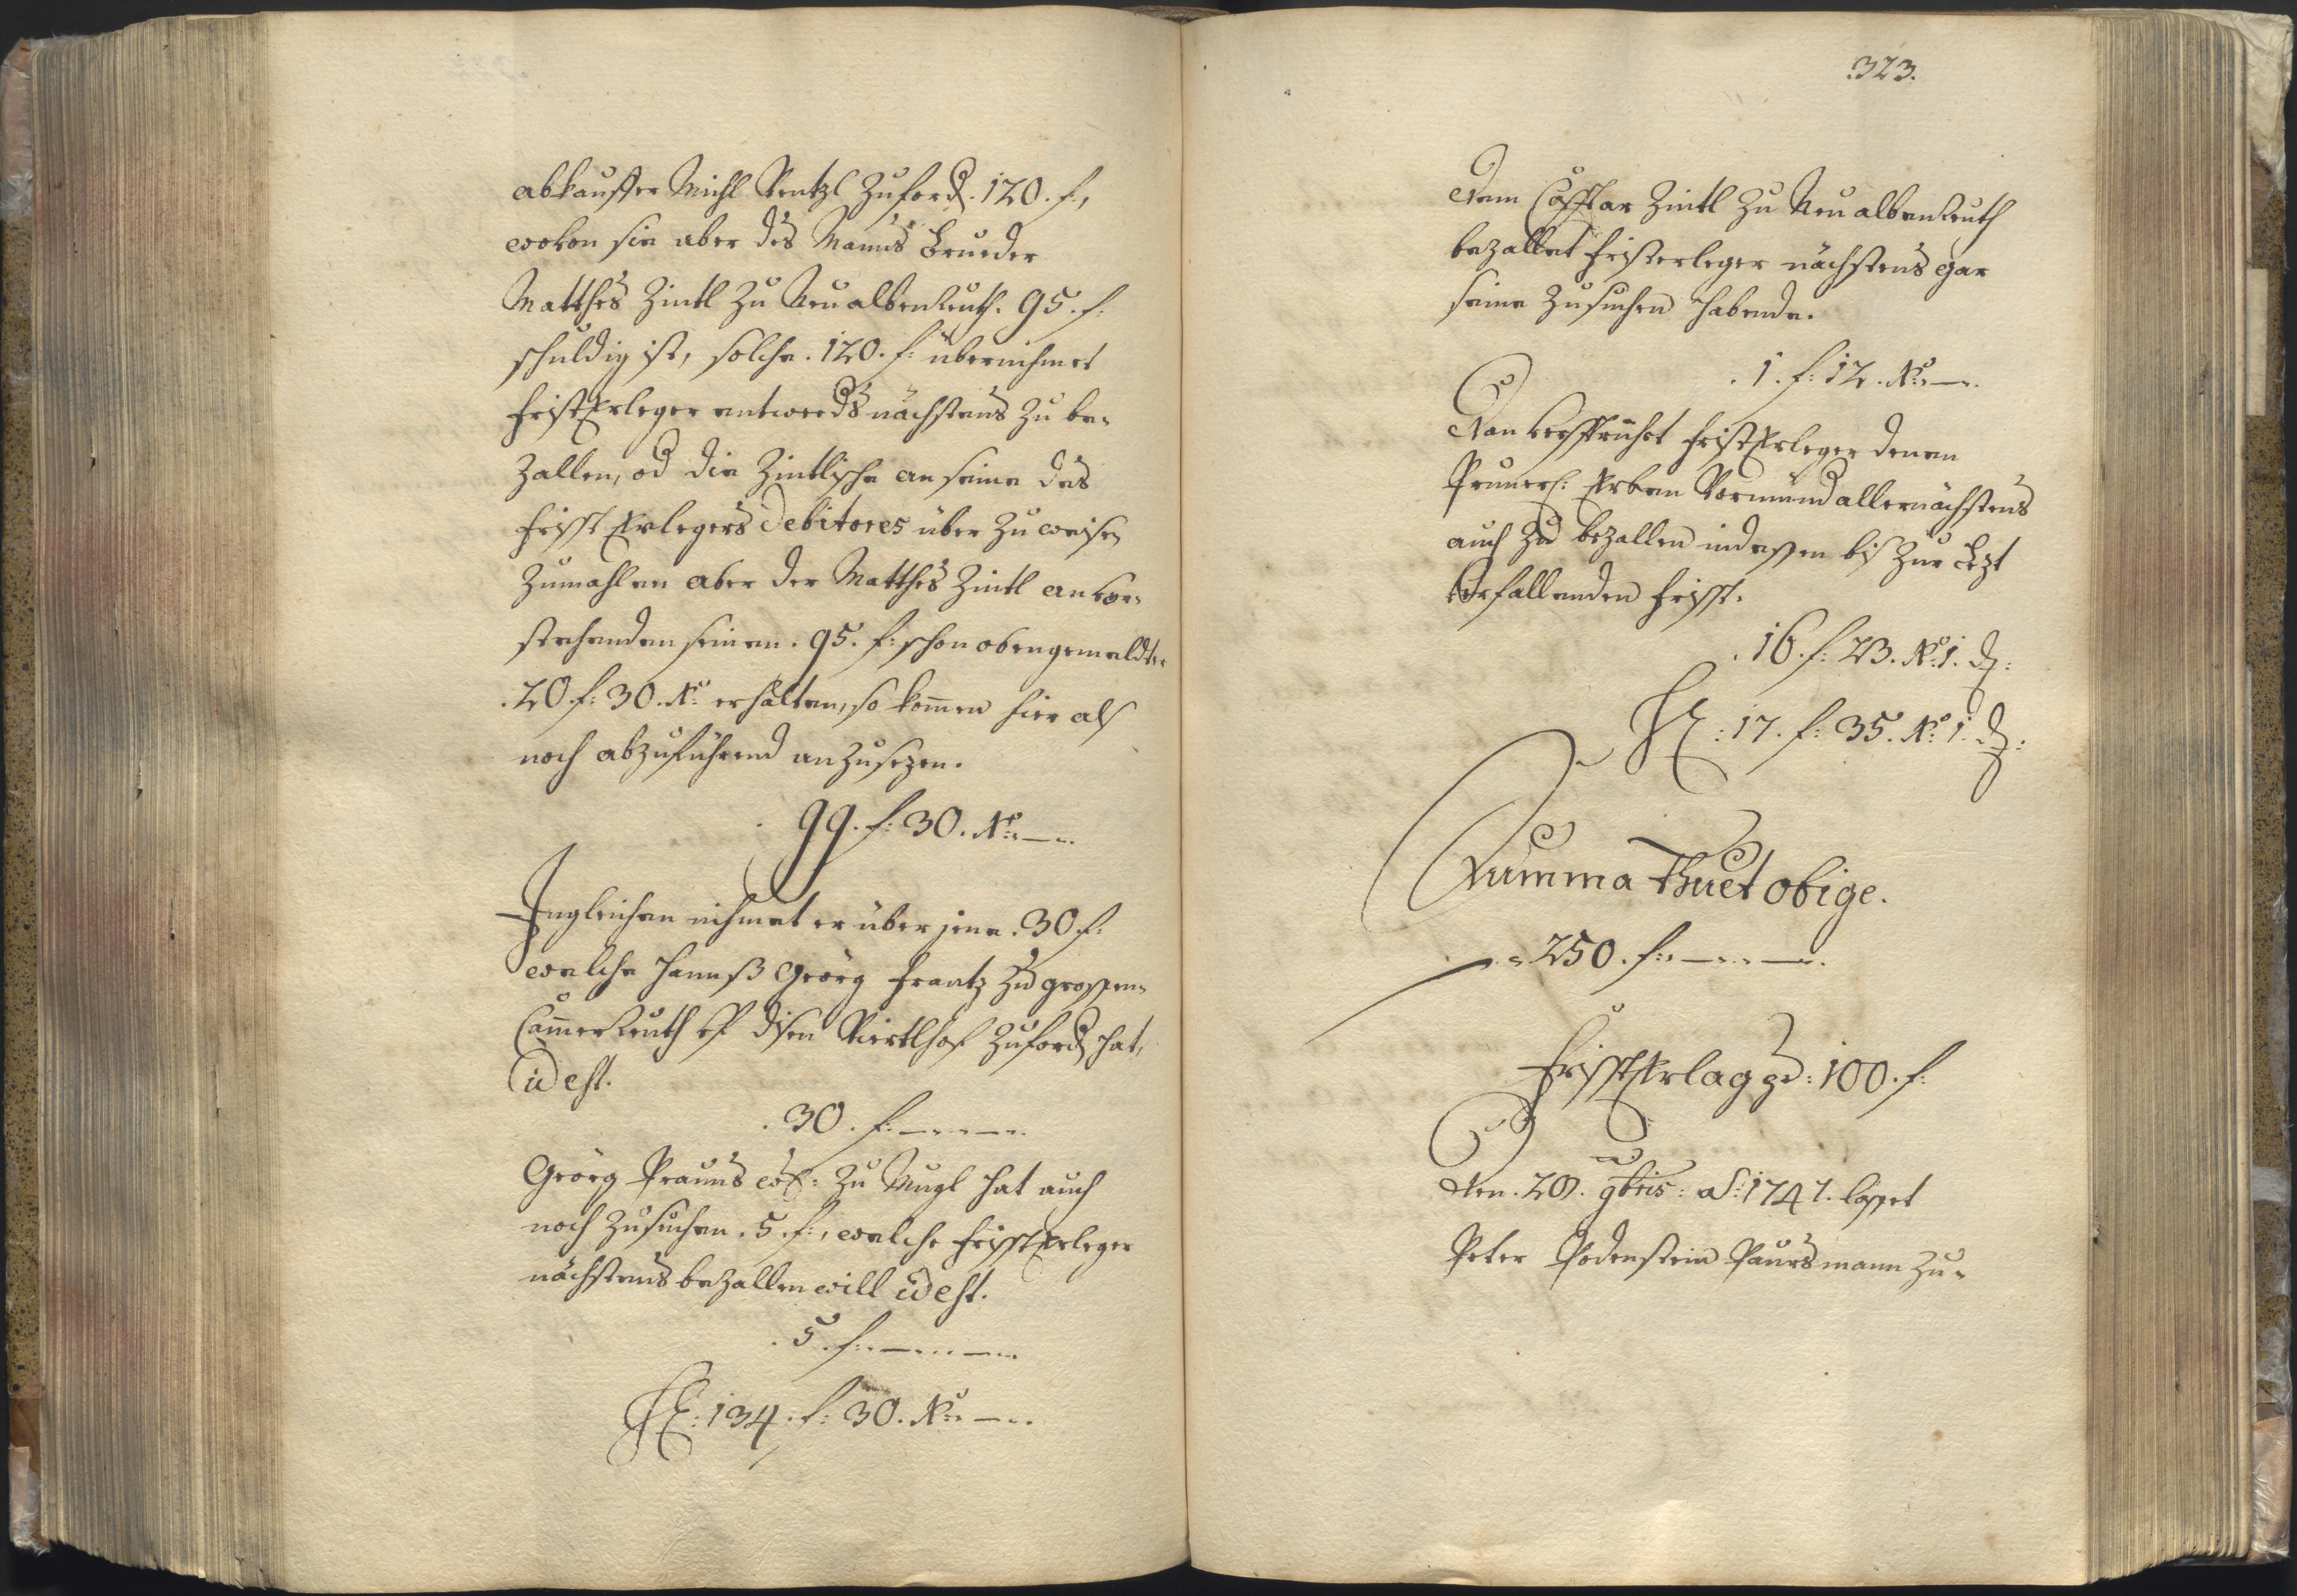 abkauffer Michl Rentzl zuford. 120. f:,
wovon sie aber des Manns Brueder
Matthes Zintl zu Neualbenreuth. 95. f:
schuldig ist, solche. 120. f: übernihmet
fristErleger entweeds nächstens zu be-
zallen, od die Zintlische an seine des
Frisst Erlegers Debitores über zu weisen
zumahlen aber der Matthes Zintl an vor-
stehenden seinen. 95. f: schon obengemeldte
. 20. f: 30. Kr: erhalten, so kommen hier alß
noch abzuführend anzusezen.
99. f: 30. Kr: —
Ingleichen nihmet er über jene. 30 f:
welche Hannß Geörg Frantz zu grossen-
Cammerreuth vf disen Viertlhof zuford hat,
id est.
. 30. f: — —
Geörg Prauns zu Mugl hat auch
noch zusuchen. 5. f:, welche FrisstErleger
nächstens bezallen will id est.
. 5. f: — —
134. f: 30. Kr: —
323.
Dem Casspar Zintl zu Neualbenreuth
bezallet fristerleger nächstens gar
seine zusuchen habende.
. 1. f: 12. Kr: —
Dan verspricht fristErleger denen
Erben Vormund allernächstens
auch zu bezallen indessen biß zur Lezt
verfallenden Frisst.
. 16. f: 23. Kr: 1. d:
: 17. f: 35. Kr: 1. d:
Summa thuet obige.
250. f: — —
FrisstErlag pr: 100. f:
Den. 20. 9bris: ao: 1747. lasset
Peter Podenstein Paursmann zu-